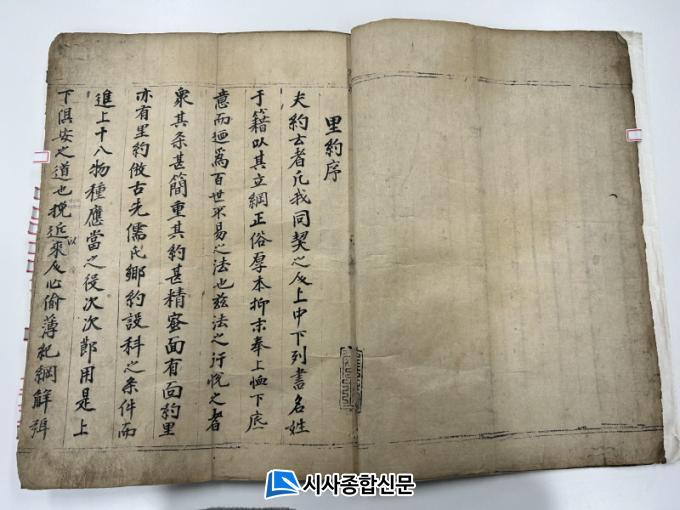 里約序
夫約玄者凡我同契之員上中下列書名姓
于籍以其立綱正俗厚本抑末奉上恤下底
意而迺爲百世不易之法也玆法之行悅之者
衆其条甚簡重其約甚精密面有面約里
亦有里約倣古先儒氏鄕約設科之条件而
進上十八物種應當之役次次節用是上
下俱安之道也挽近以來人心偷薄紀綱解弛
시사종합신문